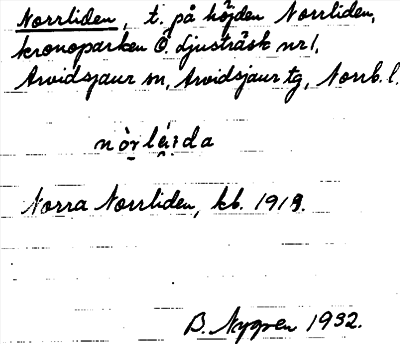 Norrliden, t. på höjden Norrliden,
kronoparken Ö. Ljusträsk nr 1,
Arvidsjaur sn, Arvidsjaur tg, Norrb. l.
Norra Norrliden, kb. 1918.
B. Nygren 1932.